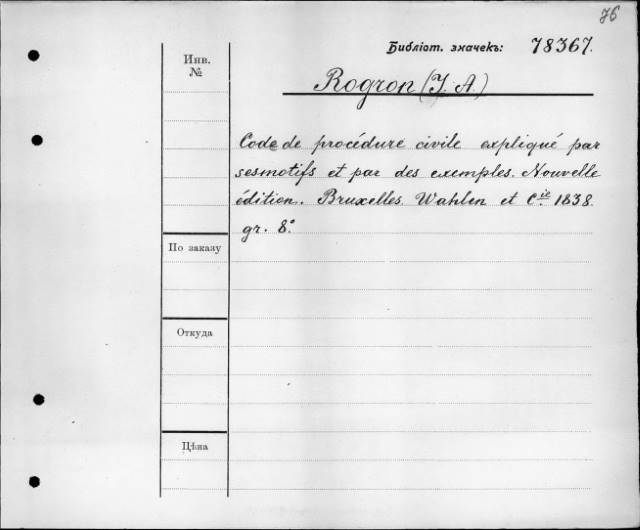 76
Библіот. значекъ: 78367.
Инв.
№
Rogron (J. A.)
Code de procédure civile expliqué par
ses motifs et par des exemples. Nouvelle
édition. Bruxelles. Wahlen et Cie 1838.
gr. 8°
По заказу
Откуда
Цѣна